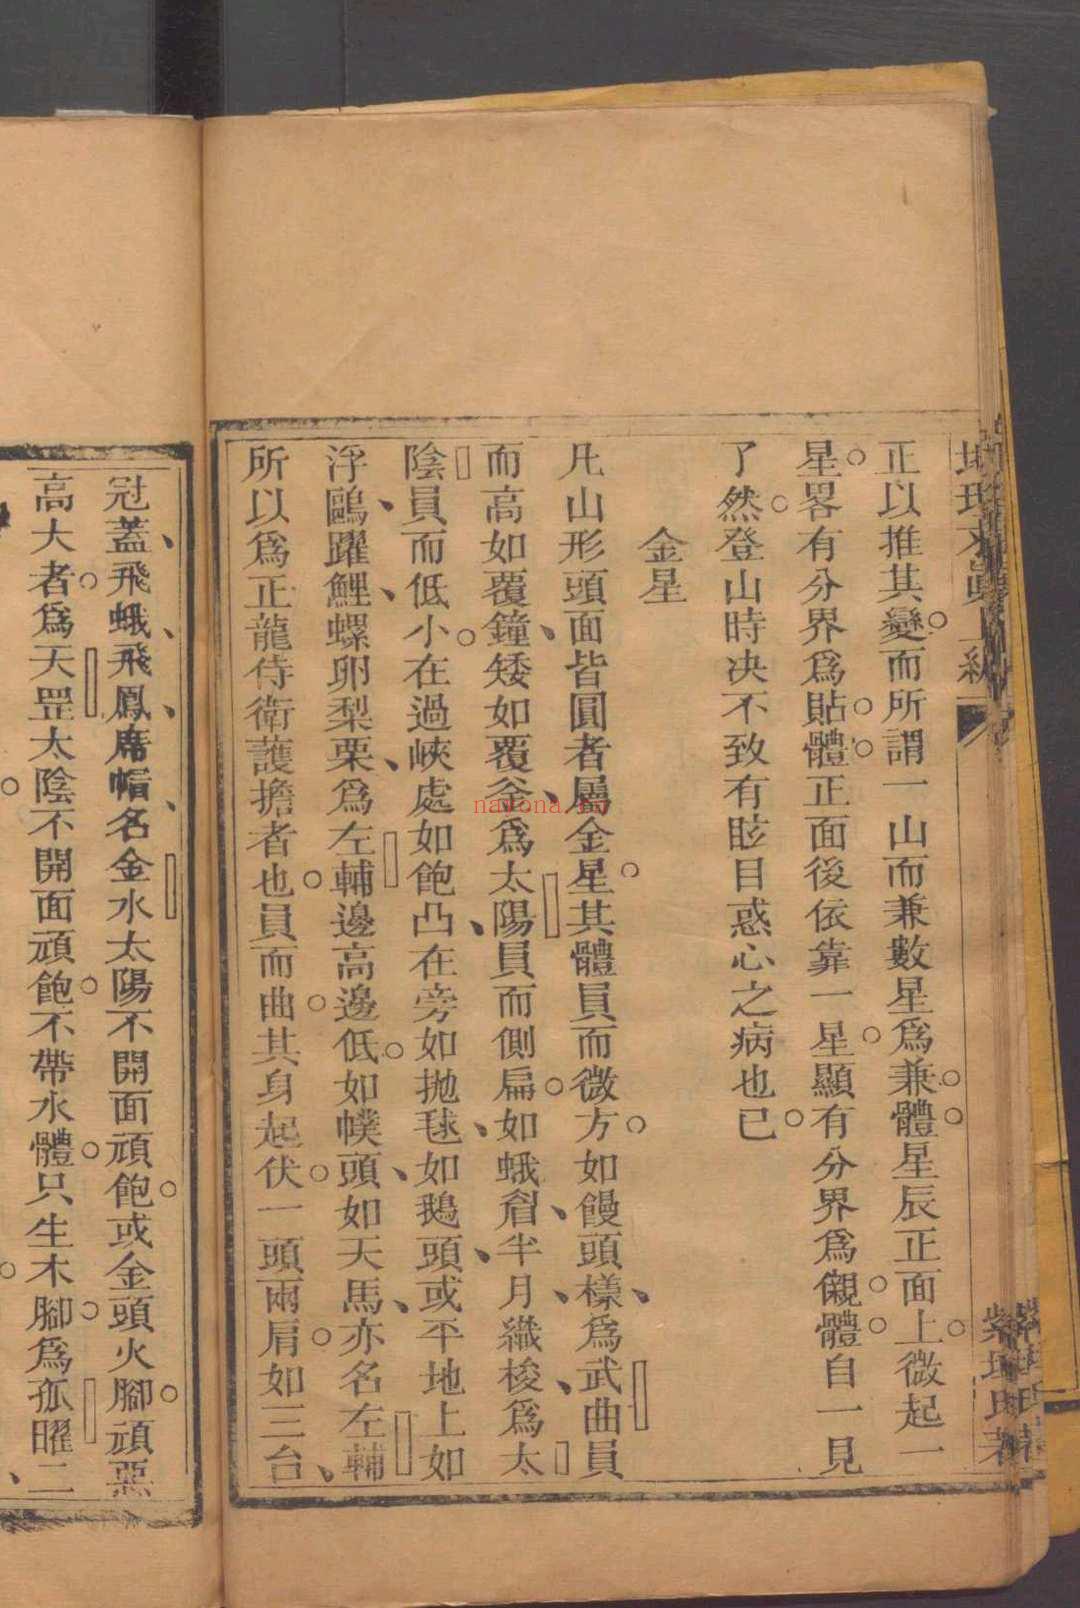 正以推其變而所謂一山而兼數星爲兼體星辰正面上微起一
星畧有分界爲貼體正面後依靠一星顯有分界爲儭體自一見
了然登山時决不致有眩目惑心之病也已
金星
凡山形頭面皆圓者屬金星其體員而微方如饅頭樣爲武曲員
而高如覆鐘矮如覆釜爲太陽員而側扁如蛾眉半月織梭爲太
陰員而低小在過峽處如鮑凸在旁如抛毬如鵝頭或平地上如
浮鷗躍鯉螺卵梨栗爲左輔邊高邊低如幞頭如天馬亦名左輔
所以爲正龍侍衛護擔者也員而曲其身起伏一頭兩肩如三台
冠蓋飛蛾飛鳳席帽名金水太陽不開面頑飽或金頭火腳頑惡
高大者爲天罡太陰不開面頑飽不帶水體只生木腳爲孤曜二